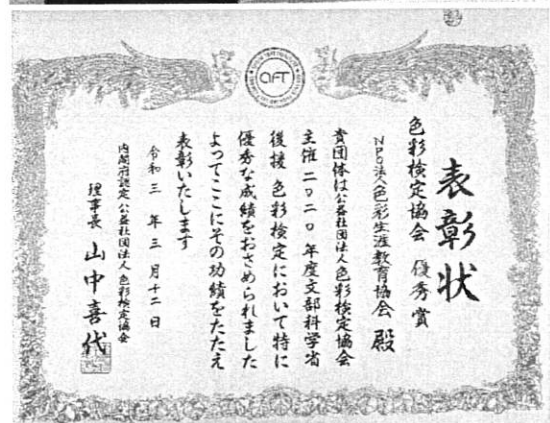 AFT
表彰状
色彩検定協会 優秀賞
NPO法人色彩生涯教育協会 殿
貴団体は公益社団法人色彩検定協会
主催二〇二〇年度文部科学省
後援 色彩検定において特に
優秀な成績をおさめられました
よってここにその功績をたたえ
表彰いたします
令和三年三月十二日
内閣府認定公益社団法人色彩検定協会
理事長 山中喜代